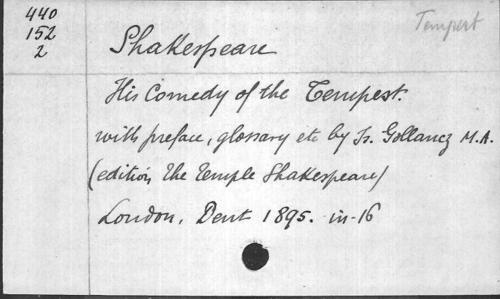 440
152
2
Tempest
Shakespeare
His Comedy of the Tempest.
with preface, glossary etc by Is. Gollancz M.A.
(edition, The Temple Shakespeare)
London, Dent 1895. in-16